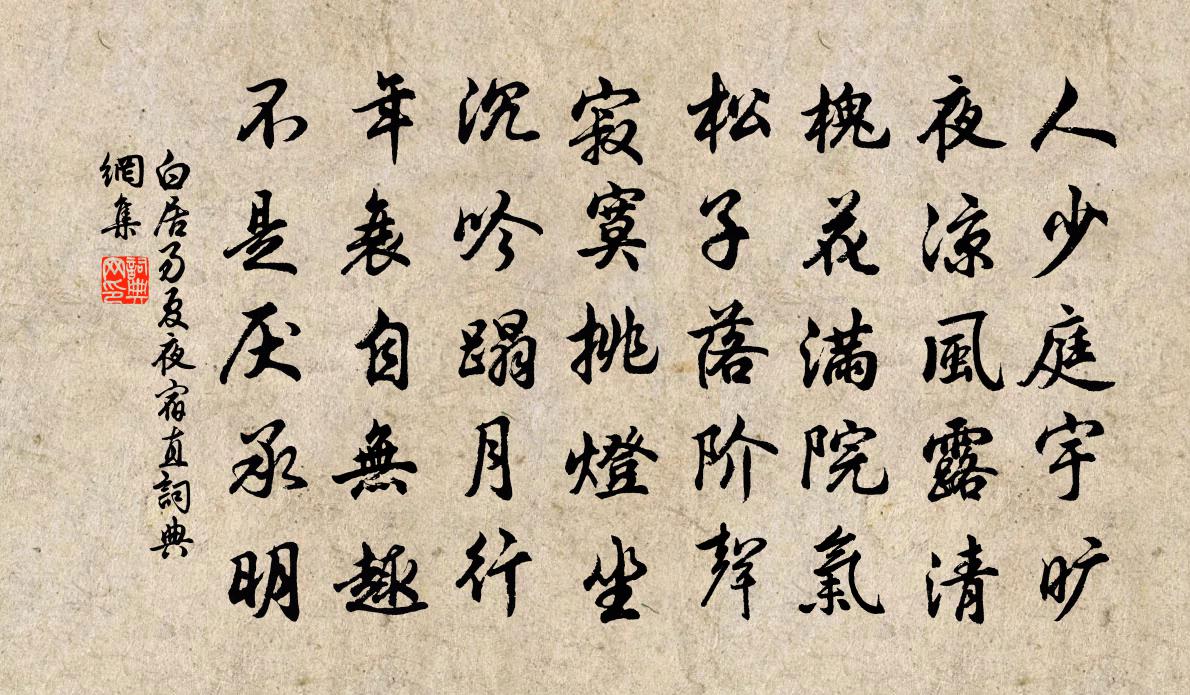 人少庭宇旷
夜凉風露清
槐花满院氣
松子落阶聲
寂寞挑燈坐
沉吟蹋月行
年衰自無趣
不是厌承明
白居易夏夜宿直詞典
網集
詞典
网印